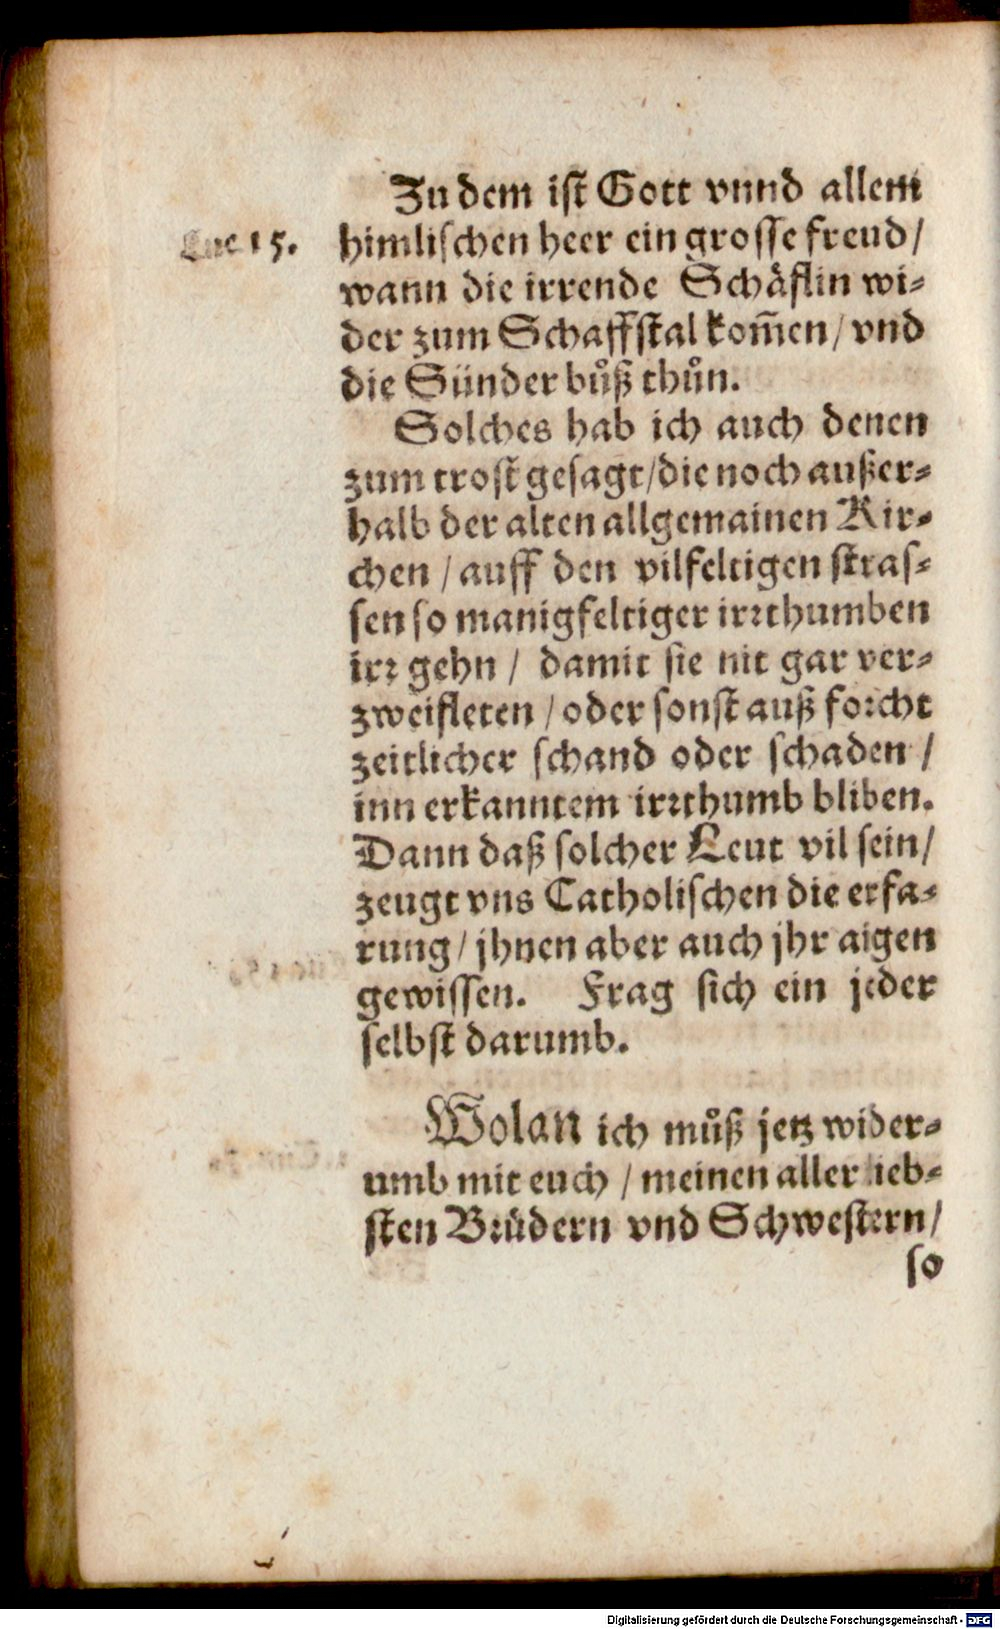 Zu dem ist Gott vnnd allem
Luc 15.
himlischen heer ein grosse freud/
wann die irrende Schäflin wi⸗
der zum Schaffstal kom̃en/ vnd
die Sünder bůß thůn.
Solches hab ich auch denen
zum trost gesagt/die noch außer⸗
halb der alten allgemainen Kir⸗
chen / auff den vilfeltigen stras⸗
sen so manigfeltiger irꝛthumben
irꝛ gehn / damit sie nit gar ver⸗
zweifleten / oder sonst auß foꝛcht
zeitlicher schand oder schaden /
inn erkanntem irꝛthumb bliben.
Dann daß solcher Leut vil sein/
zeugt vns Catholischen die erfa⸗
rung/ jhnen aber auch jhr aigen
gewissen. Frag sich ein jeder
selbst darumb.
Wolan ich můß jetz wider⸗
umb mit euch / meinen aller lieb⸗
sten Bꝛüdern vnd Schwestern/
so
Digitalisierung gefördert durch die Deutsche Forschungsgemeinschaft - DFG